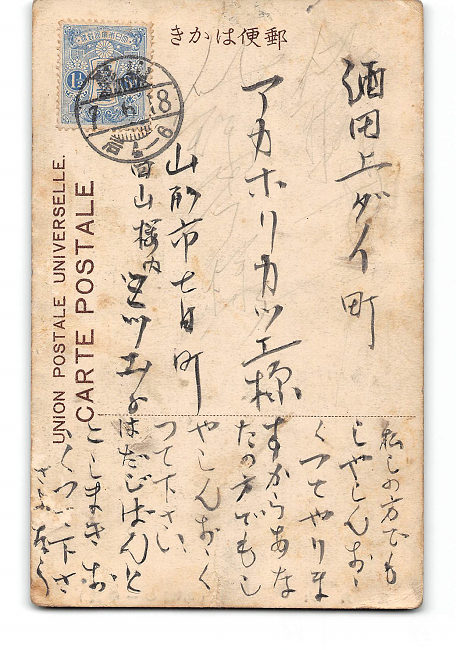 郵便はかき
酒田上ダイ町
アカホリカツエ様
山形市七日町
白山様内
ミツエより
私しの方でも
しやしんおく
くつてやりま
すからあな
たの方でもし
やしんおく
つて下さい
はだじばんと
こしまきお
くつて下さ
UNION POSTALE UNIVERSELLE.
CARTE POSTALE
1½